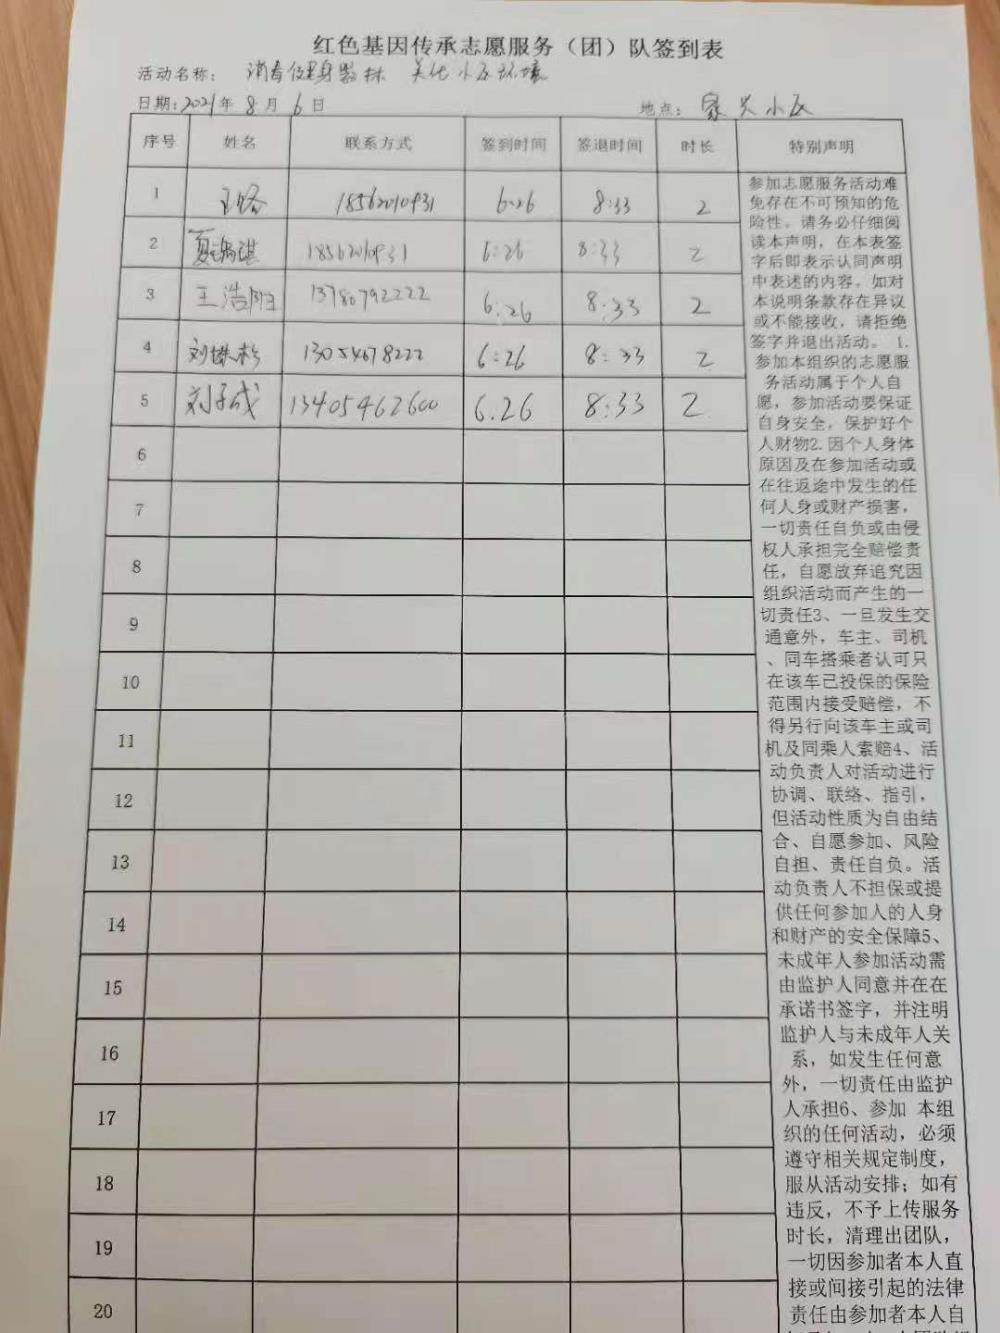 红色基因传承志愿服务（团）队签到表
活动名称： 清香健身器材 美化小区环境
日期：2021年 8月 6日 地点： 家兴小区
序号 姓名 联系方式 签到时间 签退时间 时长 特别声明
1 王路 18562010931 6:26 8:33 2
2 18562010931 6:26 8:33 2
3 王浩 13780792222 6:26 8:33 2
4 刘 13054678222 6:26 8:33 2
5 刘子成 13405462600 6.26 8:33 2
6
7
8
9
10
11
12
13
14
15
16
17
18
19
20
参加志愿服务活动难
免存在不可预知的危
险性。请务必仔细阅
读本声明，在本表签
字后即表示认同声明
中表述的内容。如对
本说明条款存在异议
或不能接收，请拒绝
签字并退出活动。 1.
参加本组织的志愿服
务活动属于个人自
愿，参加活动要保证
自身安全，保护好个
人财物2.因个人身体
原因及在参加活动或
在往返途中发生的任
何人身或财产损害，
一切责任自负或由侵
权人承担完全赔偿责
任，自愿放弃追究因
组织活动而产生的一
切责任3、一旦发生交
通意外，车主、司机
、同车搭乘者认可只
在该车已投保的保险
范围内接受赔偿，不
得另行向该车主或司
机及同乘人索赔4、活
动负责人对活动进行
协调、联络、指引，
但活动性质为自由结
合、自愿参加、风险
自担、责任自负。活
动负责人不担保或提
供任何参加人的人身
和财产的安全保障5、
未成年人参加活动需
由监护人同意并在在
承诺书签字，并注明
监护人与未成年人关
系，如发生任何意
外，一切责任由监护
人承担6、参加 本组
织的任何活动，必须
遵守相关规定制度，
服从活动安排；如有
违反，不予上传服务
时长，清理出团队，
一切因参加者本人直
接或间接引起的法律
责任由参加者本人自